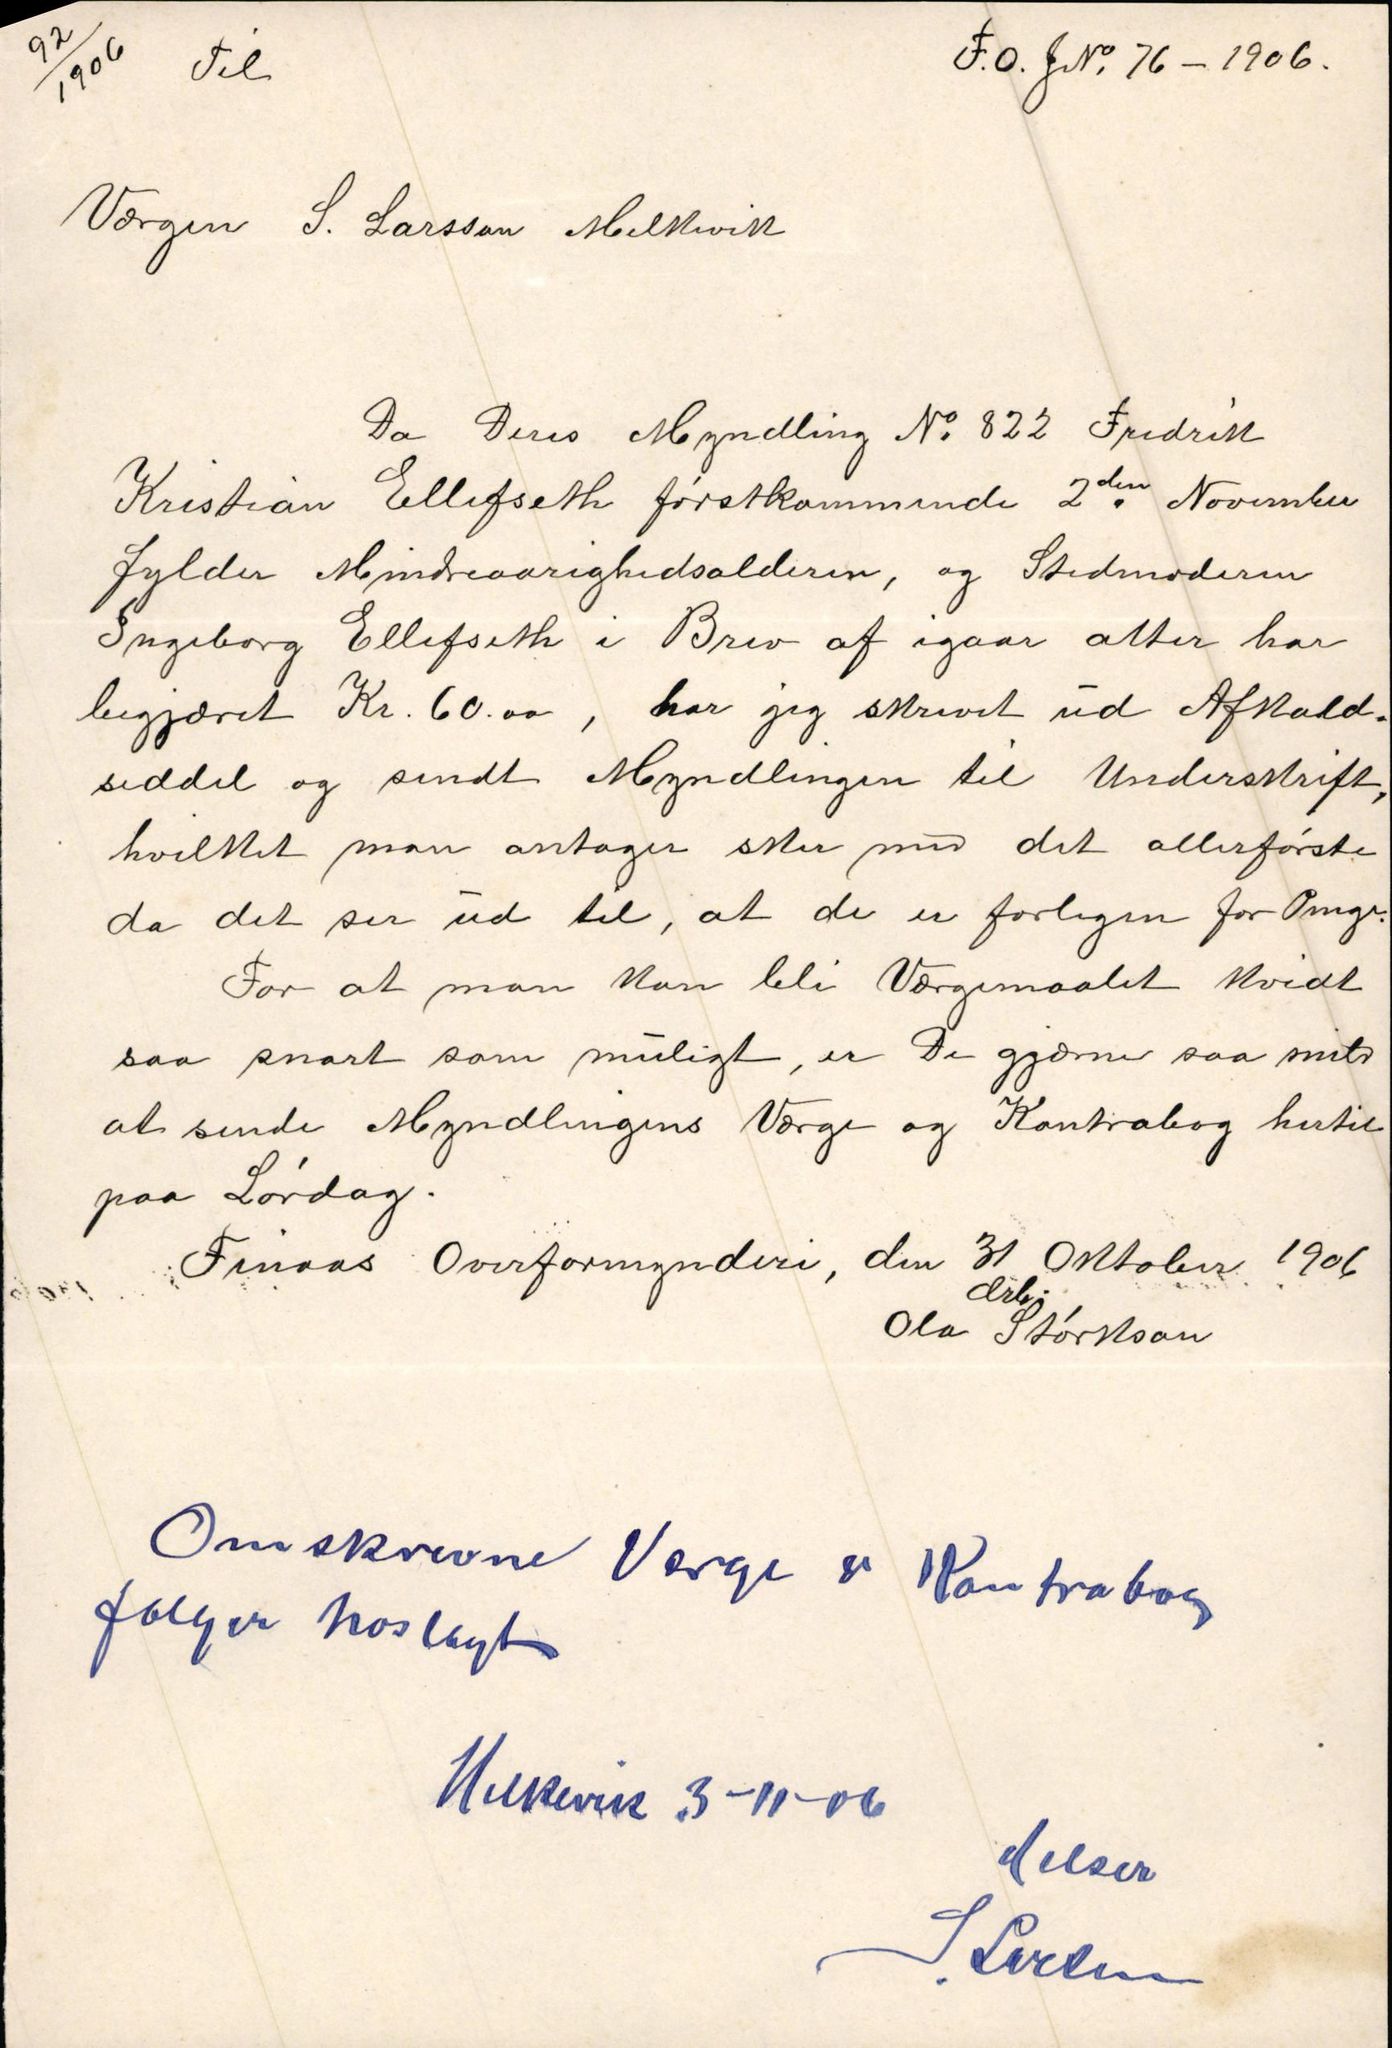 92/1906
Til
F.O. J.No. 76 - 1906.
Værgen S. Larsson Melkevik
Da Deres Myndling No. 822 Fredrik
Kristian Ellefseth førstkommende 2den November
fylder Mindreaarighedsalderen, og Stedmoderen
Ingeborg Ellefseth i Brev af igaar atter har
begjæret Kr. 60.00, har jeg skrevet ud Afkald-
seddel og sendt Myndlingen til Underskrift,
hvilket man antager sker med det allerførste
da det ser ud til, at de er forlegen for Penge.
For at man kan bli Værgemaalet kvidt
saa snart som muligt, er De gjerne saa snild
at sende Myndlingens Værge og Kontrabog hertil
paa Lørdag.
Finaas Overformynderi, den 31 Oktober 1906
drb.
Ola Størkson
Omskrevne Værge & Kontrabog
følger hoslagt
Melkevik 3-11-06
Helser
S. Larsen